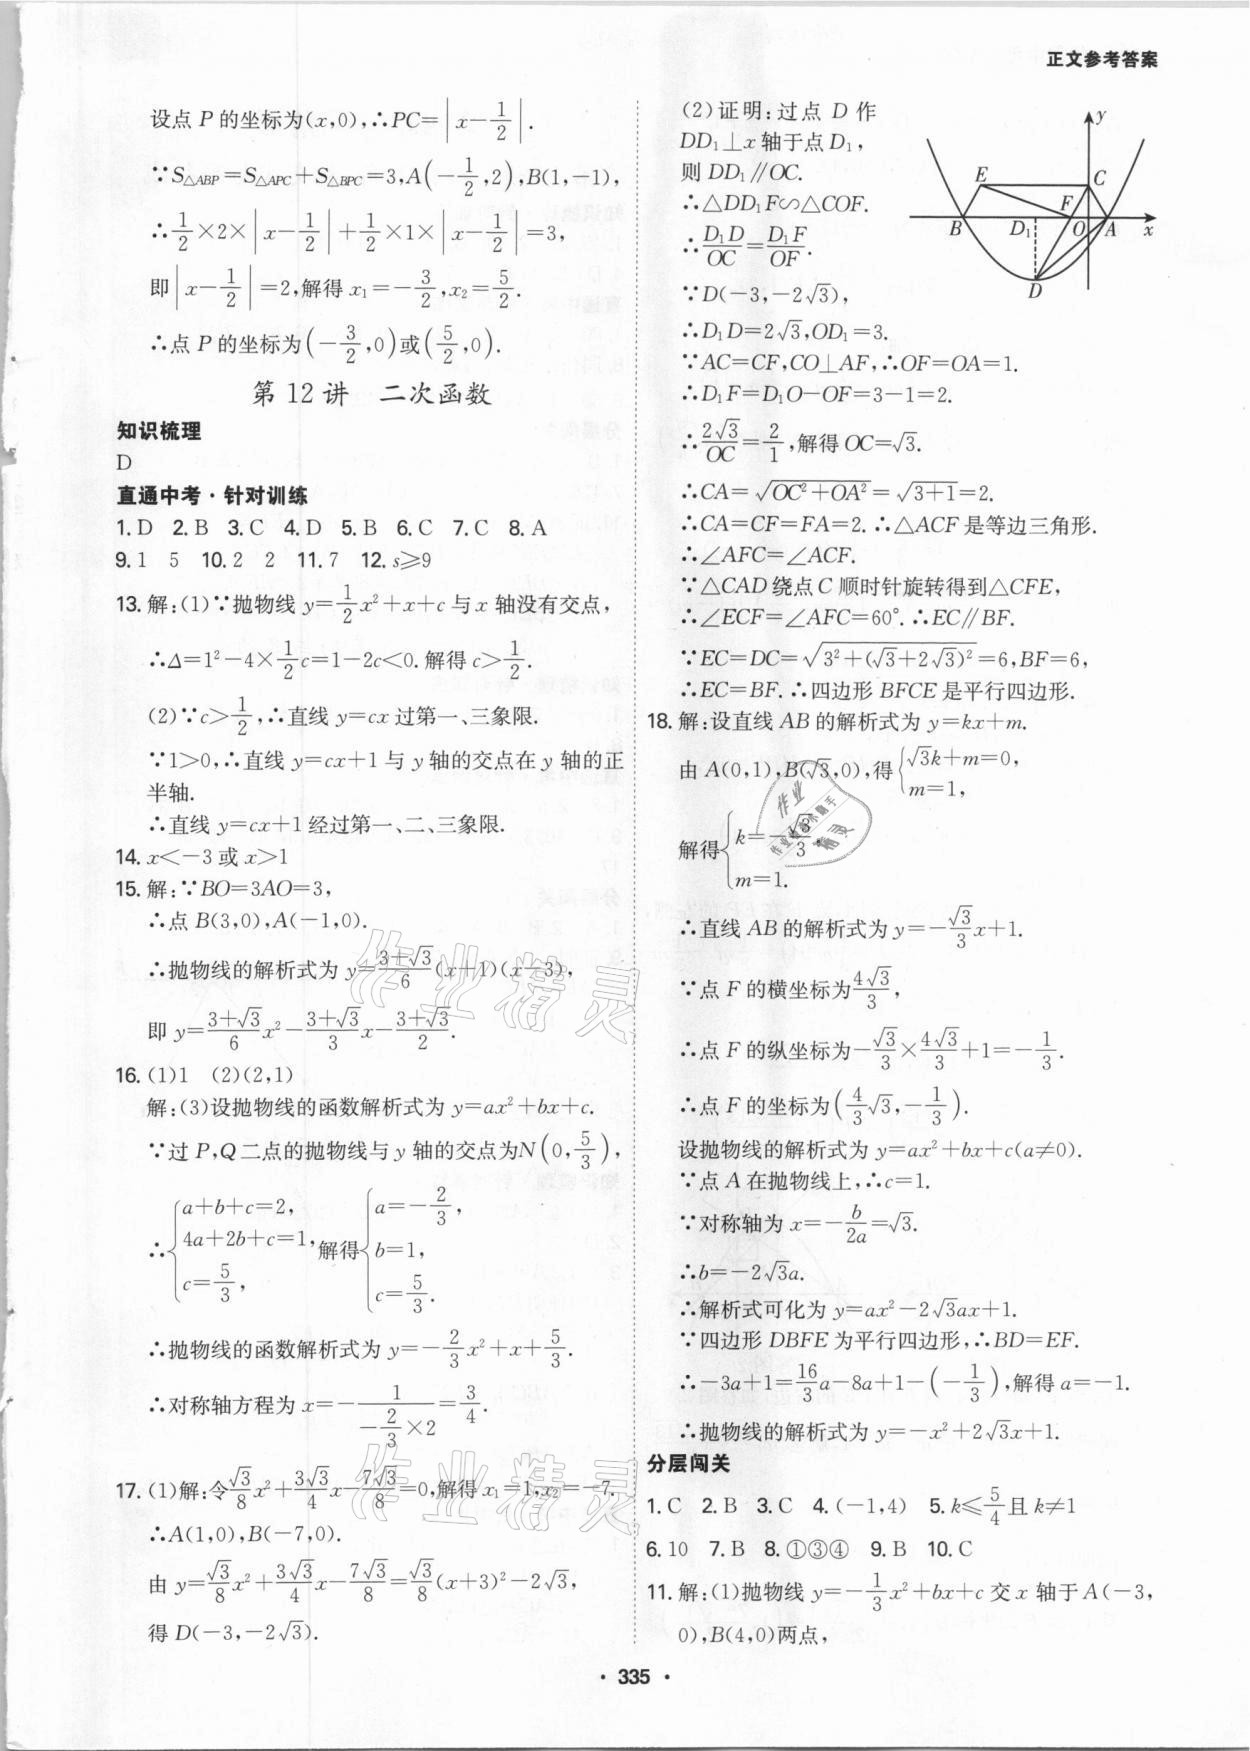 正文参考答案
设点 P 的坐标为(x,0),∴PC=|x-1/2|.
∵S△ABP=S△APC+S△BPC=3,A(-1/2,2),B(1,-1),
∴1/2×2×|x-1/2|+1/2×1×|x-1/2|=3,
即|x-1/2|=2,解得 x₁=-3/2,x₂=5/2.
∴点 P 的坐标为(-3/2,0)或(5/2,0).
第 12 讲 二次函数
知识梳理
D
直通中考·针对训练
1. D 2. B 3. C 4. D 5. B 6. C 7. C 8. A
9. 1 5 10. 2 2 11. 7 12. s⩾9
13. 解:(1)∵抛物线 y=1/2x²+x+c 与 x 轴没有交点,
∴Δ=1²-4×1/2c=1-2c<0. 解得 c>1/2.
(2)∵c>1/2,∴直线 y=cx 过第一、三象限.
∵1>0,∴直线 y=cx+1 与 y 轴的交点在 y 轴的正
半轴.
∴直线 y=cx+1 经过第一、二、三象限.
14. x<-3 或 x>1
15. 解:∵BO=3AO=3,
∴点 B(3,0),A(-1,0).
∴抛物线的解析式为 y=(3+√3)/6(x+1)(x-3),
即 y=(3+√3)/6x²-(3+√3)/3x-(3+√3)/2.
16. (1)1 (2)(2,1)
解:(3)设抛物线的函数解析式为 y=ax²+bx+c.
∵过 P,Q 二点的抛物线与 y 轴的交点为N(0,5/3),
∴{a+b+c=2, 4a+2b+c=1, c=5/3, 解得{a=-2/3, b=1, c=5/3.
∴抛物线的函数解析式为 y=-2/3x²+x+5/3.
∴对称轴方程为 x=-1/(-2/3×2)=3/4.
17. (1)解:令√3/8x²+3√3/4x-7√3/8=0,解得 x₁=1,x₂=-7.
∴A(1,0),B(-7,0).
由 y=√3/8x²+3√3/4x-7√3/8=√3/8(x+3)²-2√3,
得 D(-3,-2√3).
(2)证明:过点 D 作
DD₁⊥x 轴于点 D₁,
则 DD₁∥OC.
∴△DD₁F∽△COF.
∴D₁D/OC=D₁F/OF.
y
E
C
F
B
D₁
O
A
x
D
∵D(-3,-2√3),
∴D₁D=2√3,OD₁=3.
∵AC=CF,CO⊥AF,∴OF=OA=1.
∴D₁F=D₁O-OF=3-1=2.
∴2√3/OC=2/1,解得 OC=√3.
∴CA=√(OC²+OA²)=√(3+1)=2.
∴CA=CF=FA=2. ∴△ACF 是等边三角形.
∴∠AFC=∠ACF.
∵△CAD 绕点 C 顺时针旋转得到△CFE,
∴∠ECF=∠AFC=60°. ∴EC∥BF.
∵EC=DC=√(3²+(√3+2√3)²)=6,BF=6,
∴EC=BF. ∴四边形 BFCE 是平行四边形.
18. 解:设直线 AB 的解析式为 y=kx+m.
由 A(0,1),B(√3,0),得{√3k+m=0, m=1,
解得{k=-√3/3, m=1.
∴直线 AB 的解析式为 y=-√3/3x+1.
∵点 F 的横坐标为4√3/3,
∴点 F 的纵坐标为-√3/3×4√3/3+1=-1/3.
∴点 F 的坐标为(4/3√3,-1/3).
设抛物线的解析式为 y=ax²+bx+c(a≠0).
∵点 A 在抛物线上,∴c=1.
∵对称轴为 x=-b/2a=√3.
∴b=-2√3a.
∴解析式可化为 y=ax²-2√3ax+1.
∵四边形 DBFE 为平行四边形,∴BD=EF.
∴-3a+1=16/3a-8a+1-(-1/3),解得 a=-1.
∴抛物线的解析式为 y=-x²+2√3x+1.
分层闯关
1. C 2. B 3. C 4. (-1,4) 5. k⩽5/4且 k≠1
6. 10 7. B 8. ①③④ 9. B 10. C
11. 解:(1)抛物线 y=-1/3x²+bx+c 交 x 轴于 A(-3,
0),B(4,0)两点,
· 335 ·
作业精灵
作业精灵
作业精灵